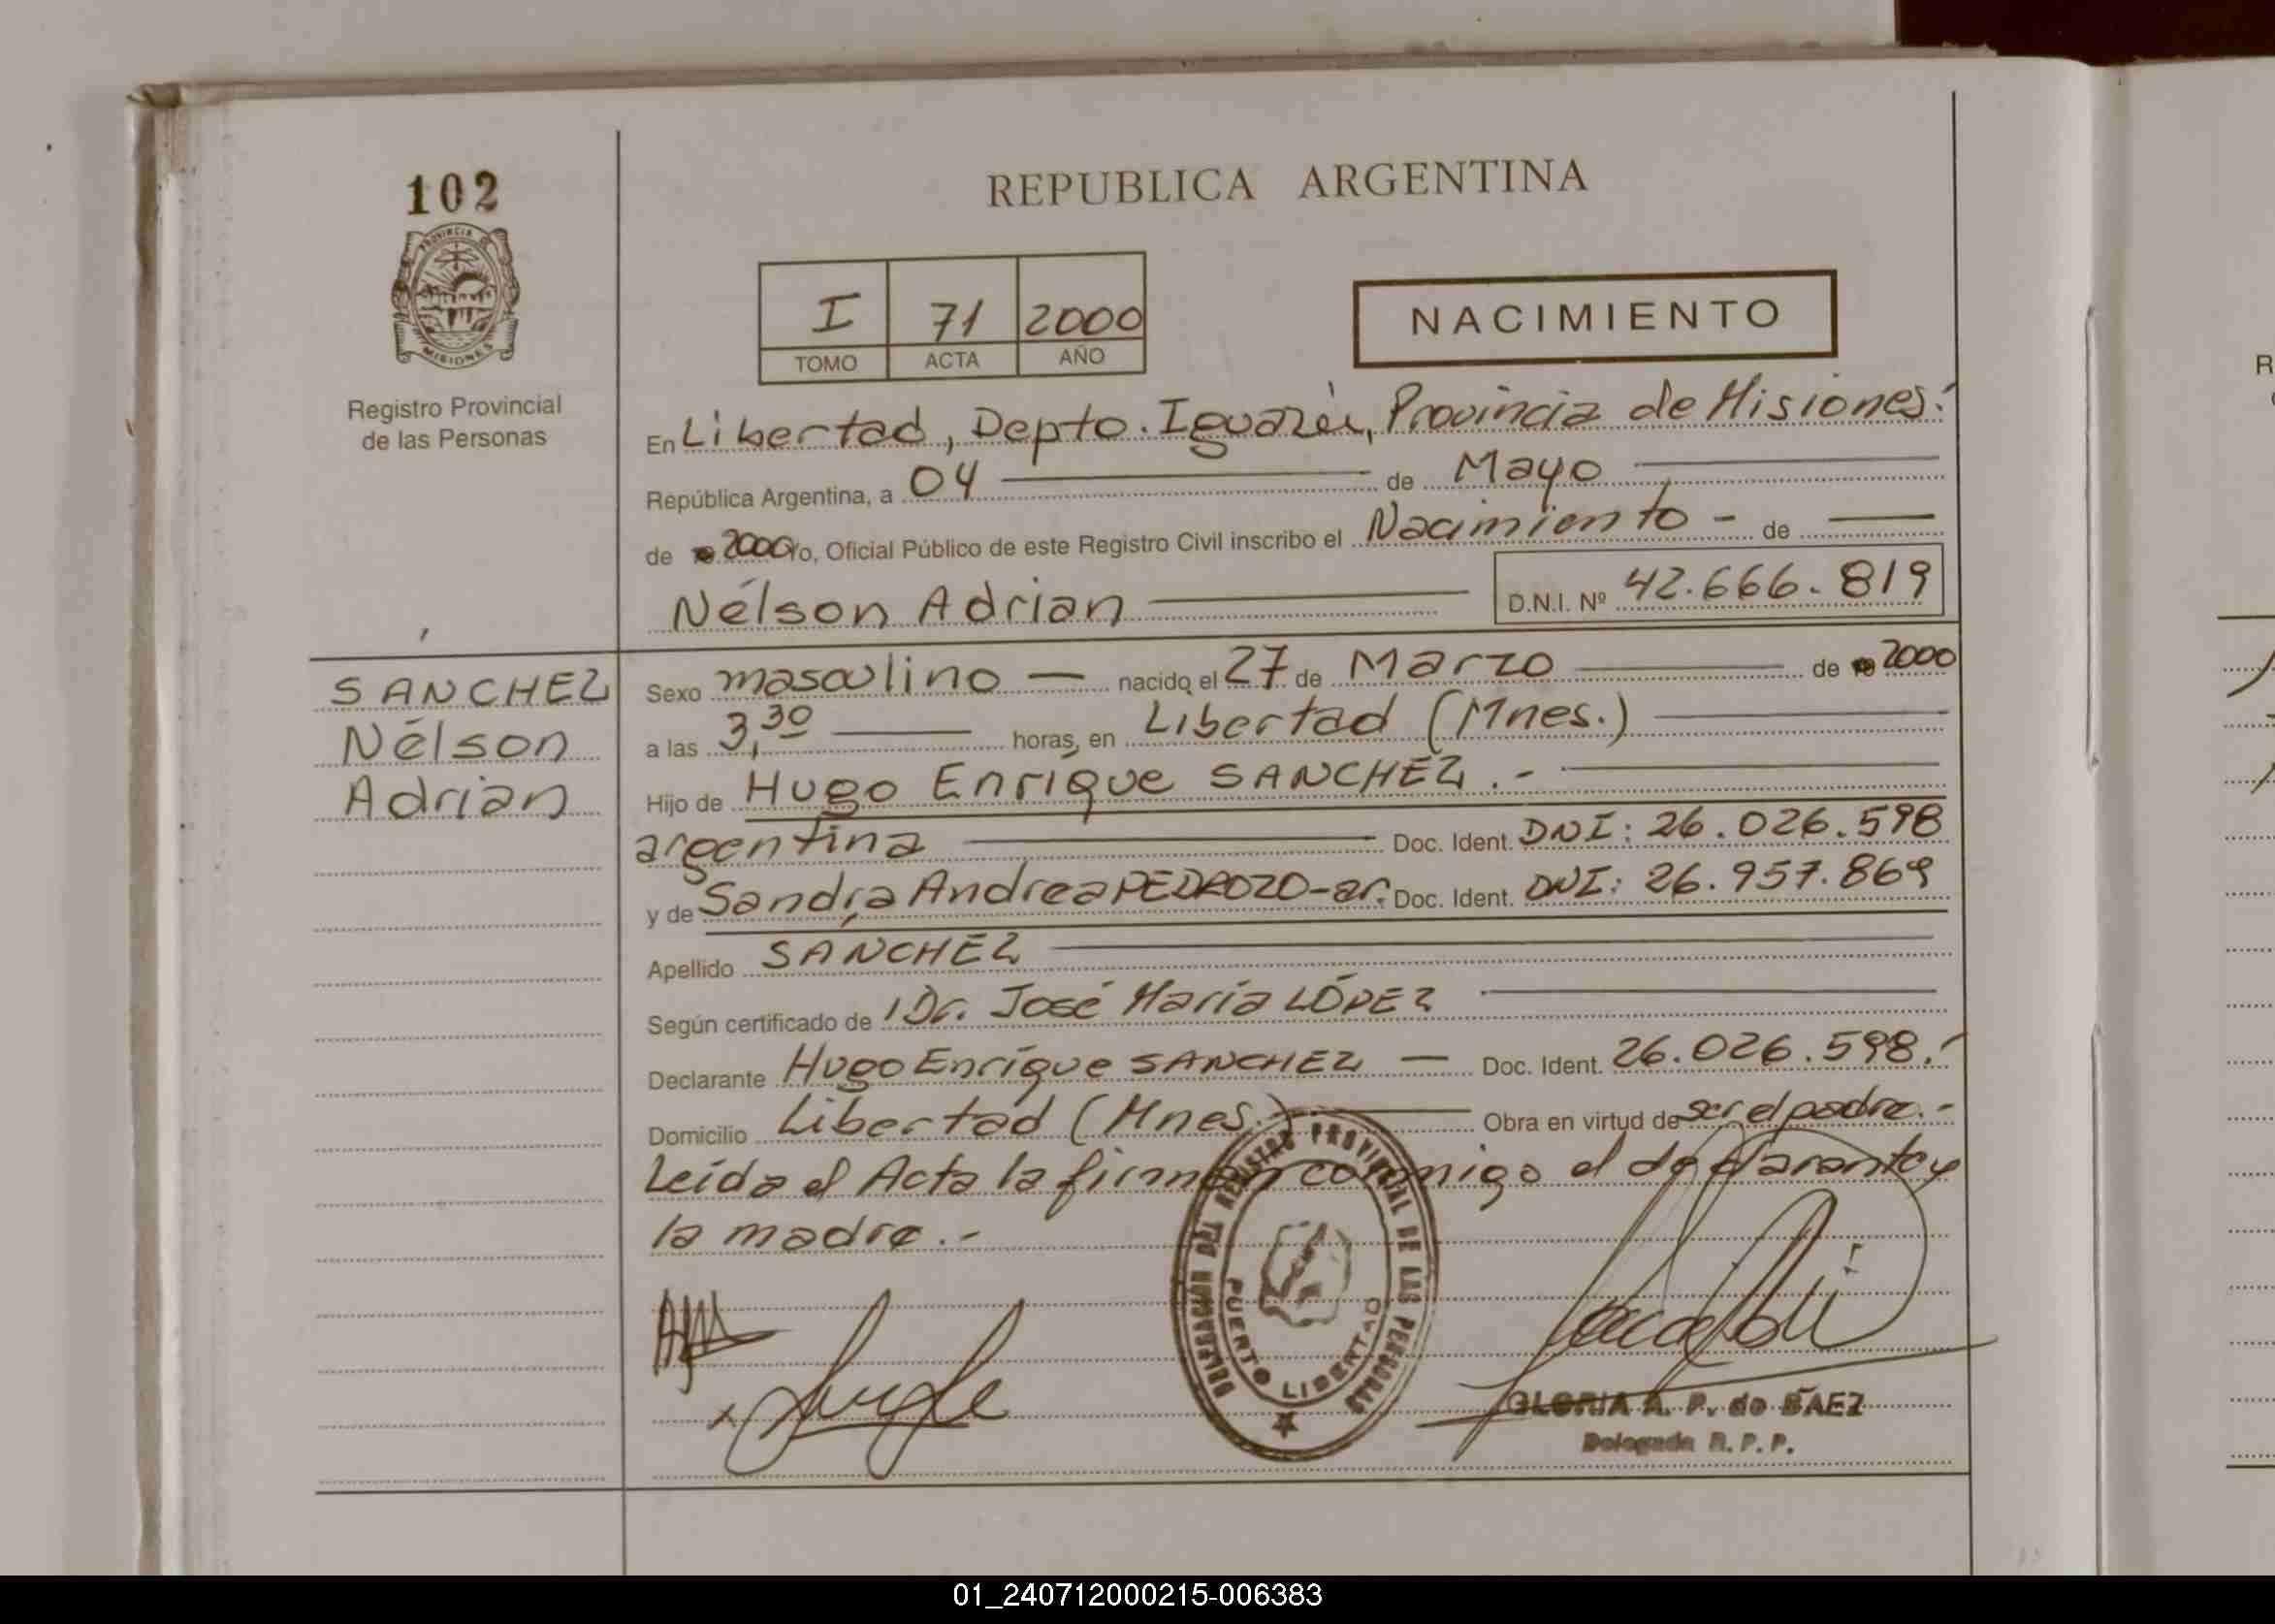 102
PROVINCIA DE
MISIONES
Registro Provincial
de las Personas
REPUBLICA ARGENTINA
I 71 2000
TOMO ACTA AÑO
NACIMIENTO
En Libertad, Depto. Iguazú, Provincia de Misiones.-
República Argentina, a 04 de Mayo
de 2000 Yo, Oficial Público de este Registro Civil inscribo el Nacimiento - de
Nélson Adrian D.N.I. Nº 42.666.819
SANCHEZ
Nélson
Adrian
Sexo masculino nacido el 27 de Marzo de 2000
a las 3,30 horas, en Libertad (Mnes.)
Hijo de Hugo Enrique SANCHEZ.-
argentina Doc. Ident. DNI: 26.026.598
y de Sandra Andrea PEDROZO-ar. Doc. Ident. DNI: 26.957.869
Apellido SANCHEZ
Según certificado de Dr. José María LÓPEZ
Declarante Hugo Enrique SANCHEZ Doc. Ident. 26.026.598.-
Domicilio Libertad (Mnes.) Obra en virtud de ser el padre.-
Leída el Acta la firman conmigo el declarante y
la madre.-
DELEGACION DEL REGISTRO PROVINCIAL DE LAS PERSONAS
PUERTO LIBERTAD
GLORIA A. P. de BAEZ
Delegada R. P. P.
01_240712000215-006383